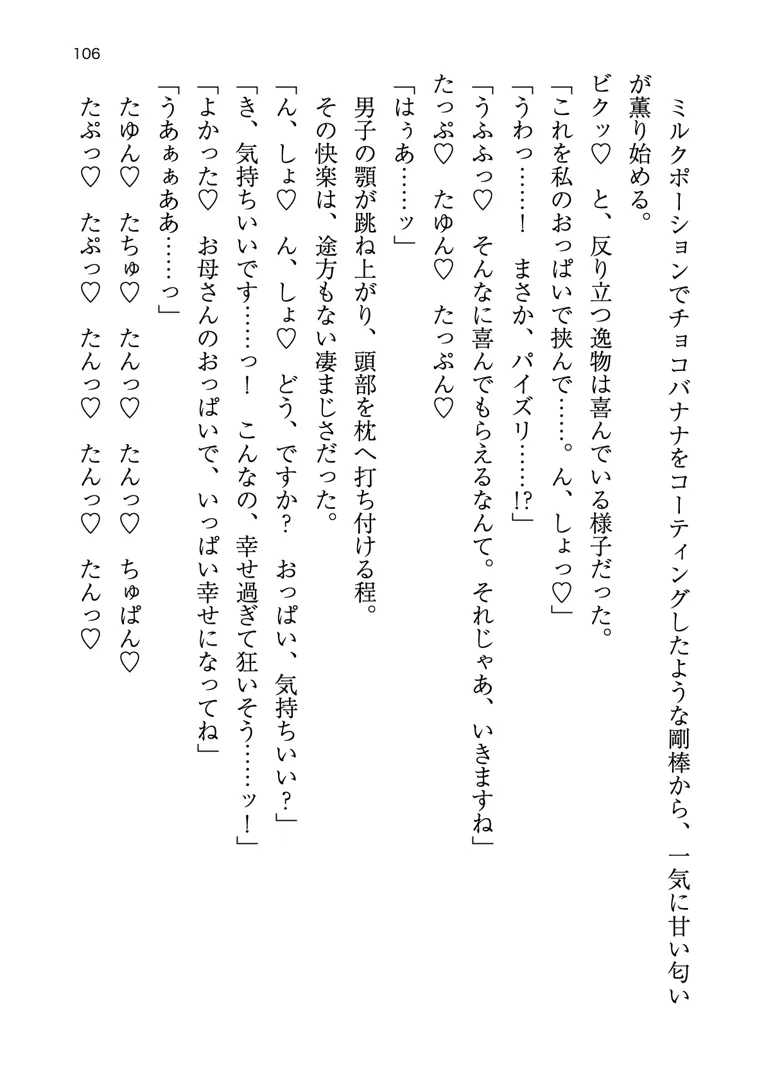 106
ミルクポーションでチョコバナナをコーティングしたような剛棒から、一気に甘い匂い
が薫り始める。
ビクッ♡　と、反り立つ逸物は喜んでいる様子だった。
「これを私のおっぱいで挟んで……。ん、しょっ♡」
「うわっ……！　まさか、パイズリ……!?」
「うふふっ♡　そんなに喜んでもらえるなんて。それじゃあ、いきますね」
たっぷ♡　たゆん♡　たっぷん♡
「はぅあ……ッ」
男子の顎が跳ね上がり、頭部を枕へ打ち付ける程。
その快楽は、途方もない凄まじさだった。
「ん、しょ♡　ん、しょ♡　どう、ですか？　おっぱい、気持ちいい？」
「き、気持ちいいです……っ！　こんなの、幸せ過ぎて狂いそう……ッ！」
「よかった♡　お母さんのおっぱいで、いっぱい幸せになってね」
「うあぁぁああ……っ」
たゆん♡　たちゅ♡　たんっ♡　たんっ♡　ちゅぱん♡
たぷっ♡　たぷっ♡　たんっ♡　たんっ♡　たんっ♡